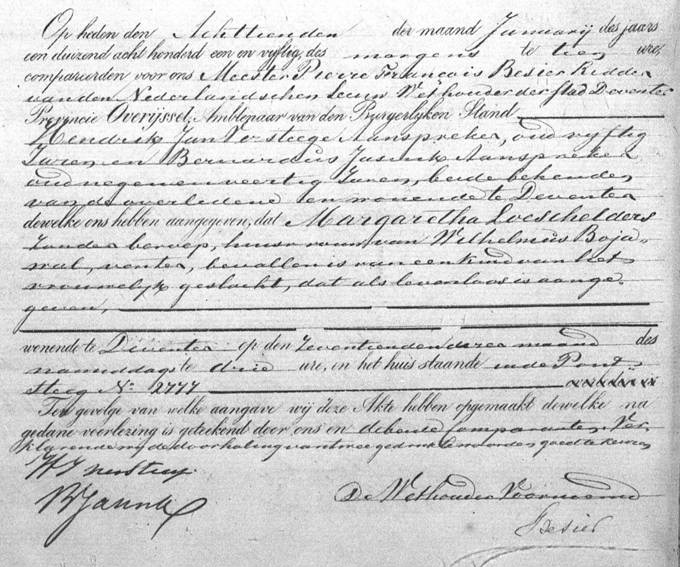 Op heden den Achttienden der maand January des jaars
een duizend acht honderd een en vyftig, des morgens te tien ure,
compareerden voor ons Meester Pierre François Besier Ridder
van den Nederlandschen Leeuw Wethouder der stad Deventer
Provincie Overijssel, Ambtenaar van den Burgerlijken Stand,
Hendrik Jan Aanspreker, oud vyftig
Jaren en Bernardus Jasink Aanspreker
oud negen en veertig Jaren, beide bekenden
van de overledene en wonende te Deventer
dewelke ons hebben aangegeven, dat Margaretha Loeschelders
zonder beroep, huisvrouw van Wilhelmus Boja-
wal, venter, bevallen is van een kind van het
vrouwelijk geslacht, dat als levenloos is aange-
geven,
wonende te Deventer op den Zeventienden dezer maand des
namiddags te drie ure, in het huis staande in de Pont
steeg No 2777
Ten gevolge van welke aangave wij deze Akte hebben opgemaakt dewelke na
gedane voorlezing is geteekend door ons en de beide Comparanten, Ver-
klarende wij de doorhaling van twee gedrukte woorden goed te keuren
BJasink
De Wethouder Voornoemd
Besier